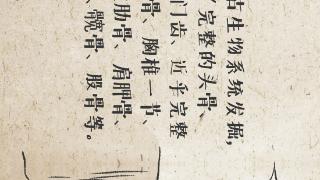 古生物系统发掘，
完整的头骨、
门齿、近乎完整
骨、胸椎一节、
肋骨、肩胛骨、
髋骨、股骨等。